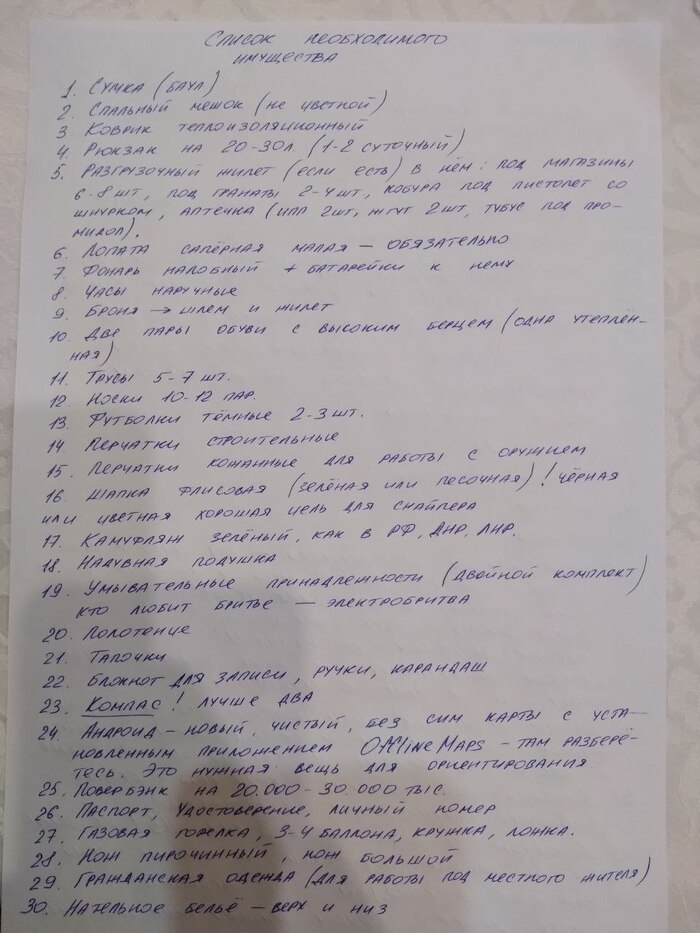 Список необходимого
имущества
1. Сумка (баул)
2. Спальный мешок (не цветной)
3 Коврик теплоизоляционный
4. Рюкзак на 20-30л (1-2 суточный)
5. Разгрузочный жилет (если есть) в нём: под магазины
6-8 шт, под гранаты 2-4 шт, кобура под пистолет со
шнурком, аптечка (ИПП 2шт, жгут 2 шт, тубус под про-
мидол).
6. Лопата сапёрная малая – обязательно
7. Фонарь налобный + батарейки к нему
8. Часы наручные
9. Броня → шлем и жилет
10. Две пары обуви с высоким берцем (одна утеплен-
ная)
11. Трусы 5-7 шт.
12 Носки 10-12 пар.
13. Футболки тёмные 2-3 шт.
14 Перчатки строительные
15. Перчатки кожанные для работы с оружием
16. Шапка флисовая (зелёная или песочная)! чёрная
или цветная хорошая цель для снайпера
17. Камуфляж зелёный, как в РФ, ДНР, ЛНР.
18. Надувная подушка
19. Умывательные принадлежности (двойной комплект)
кто любит бритьё – электробритва
20. Полотенце
21. Тапочки
22. Блокнот для записи, ручки, карандаш
23. Компас! лучше два
24. Андроид – новый, чистый, без сим карты с уста-
новленным приложением Offline Maps – там разберё-
тесь. Это нужная вещь для ориентирования
25. Повербэнк на 20.000 - 30.000 тыс.
26. Паспорт, Удостоверение, личный номер
27. Газовая горелка, 3-4 баллона, кружка, ложка.
28. Нож пирочинный, нож большой
29. Гражданская одежда (для работы под местного жителя)
30. Нательное бельё – верх и низ